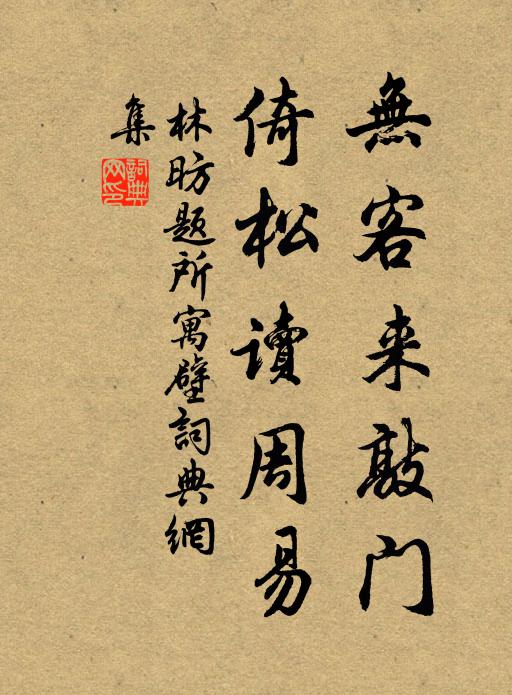 無客来敲门
倚松读周易
林昉题所寓壁詞典網
集
詞典
网印